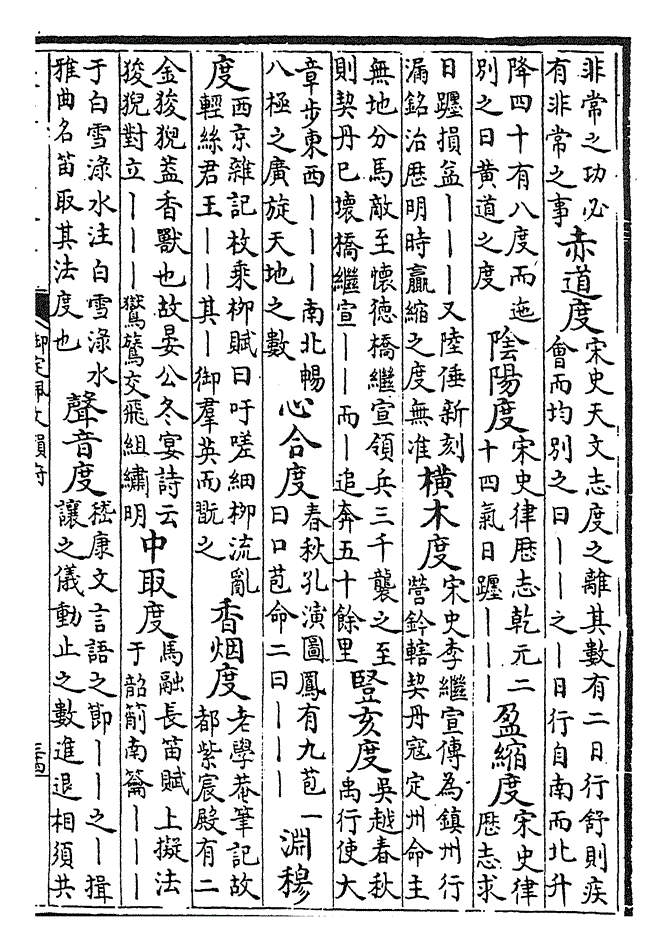 非常之功必有非常之事赤道度宋史天文志度之離其數有二日行舒則疾會而均别之曰丨丨之丨日行自南而北升
降四十有八度而迤别之曰黄道之度陰陽度宋史律厯志乾元二十四氣日躔丨丨丨盈縮度宋史律厯志求
日躔損益丨丨丨又陸倕新刻漏銘治厯明時贏縮之度無准横木度宋史李繼宣傳為鎮州行營鈐轄契丹寇定州命主
無地分馬敵至懷德橋繼宣領兵三千襲之至則契丹已壞橋繼宣丨丨而丨追奔五十餘里豎亥度吳越春秋禹行使大
章步東西丨丨丨南北暢八極之廣旋天地之數心合度春秋孔演圖鳳有九苞一曰口苞命二曰丨丨丨淵穆
度西京雜記枚乗栁賦曰吁嗟細栁流亂輕絲君王丨丨其丨御羣英而翫之香烟度老學菴筆記故都紫宸殿有二
金狻猊葢香獸也故晏公冬宴詩云狻猊對立丨丨丨鸑鷟交飛組繡明中取度馬融長笛賦上擬法于韶箾南籥丨丨丨
于白雪渌水注白雪渌水雅曲名笛取其法度也聲音度嵇康文言語之節丨丨之丨揖讓之儀動止之數進退相須共
御定佩文韻府